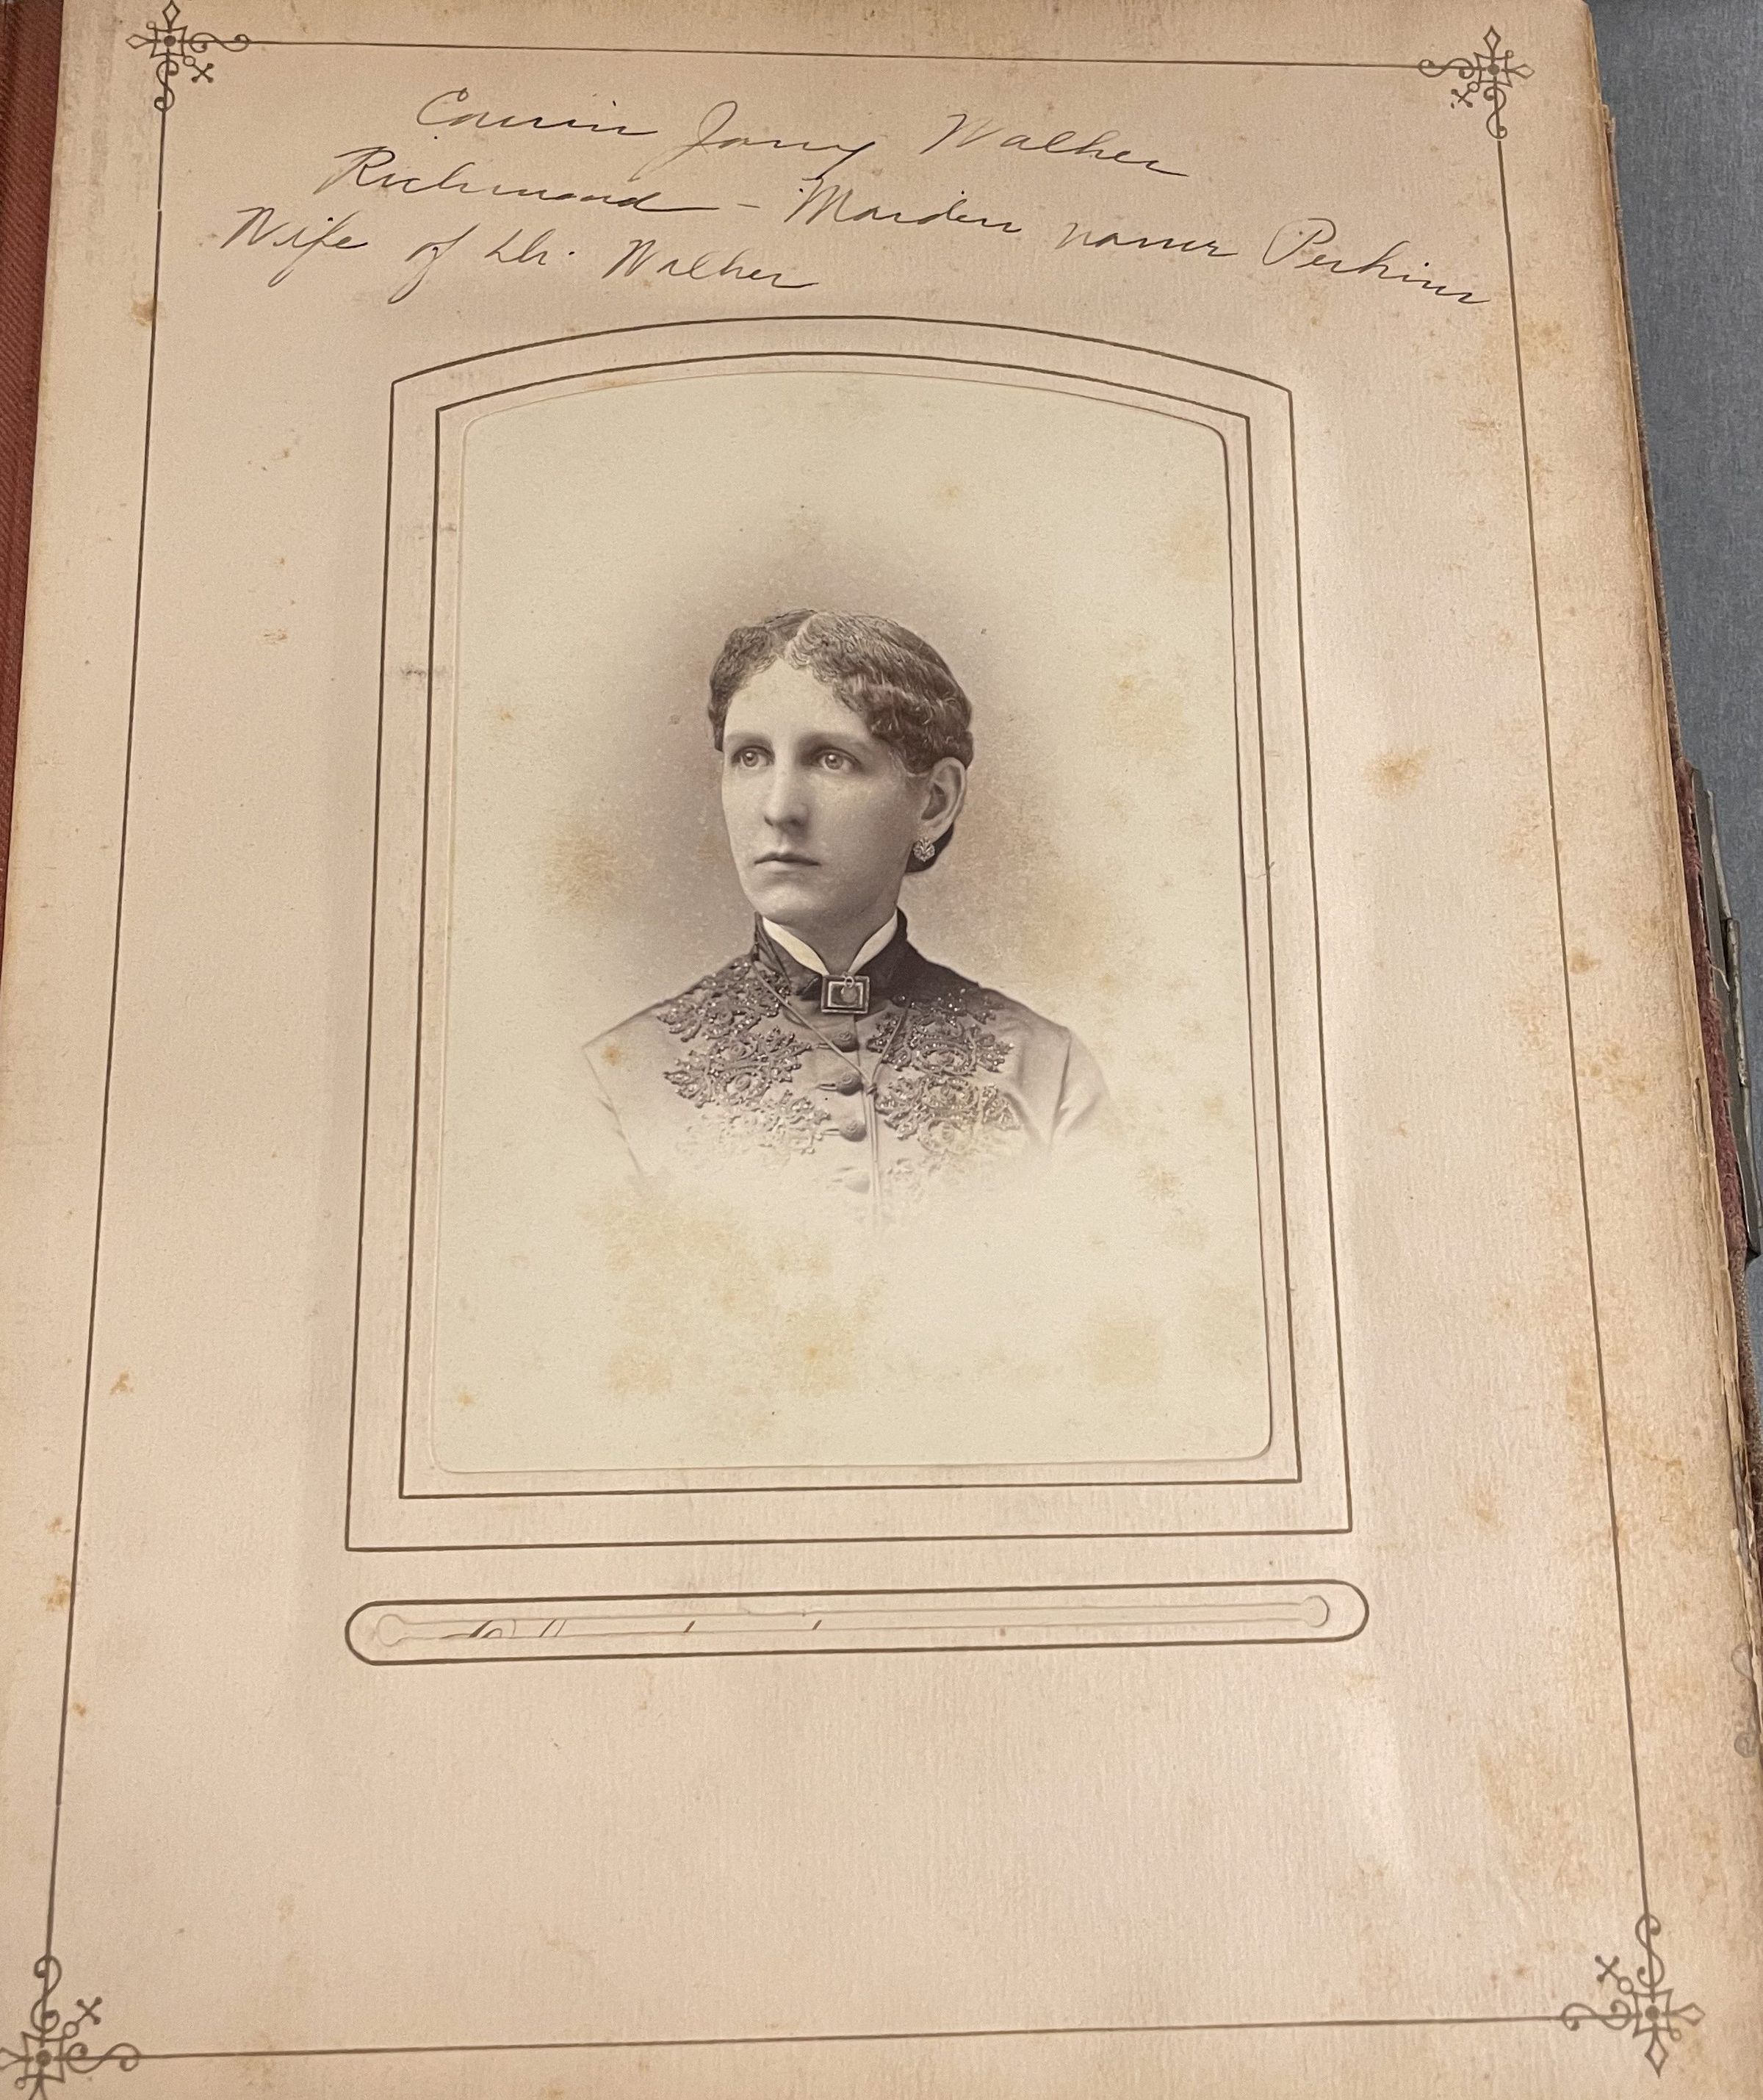 Cousin Janny Walker
Richmond - Maiden name Perkins
Wife of Dr. Walker